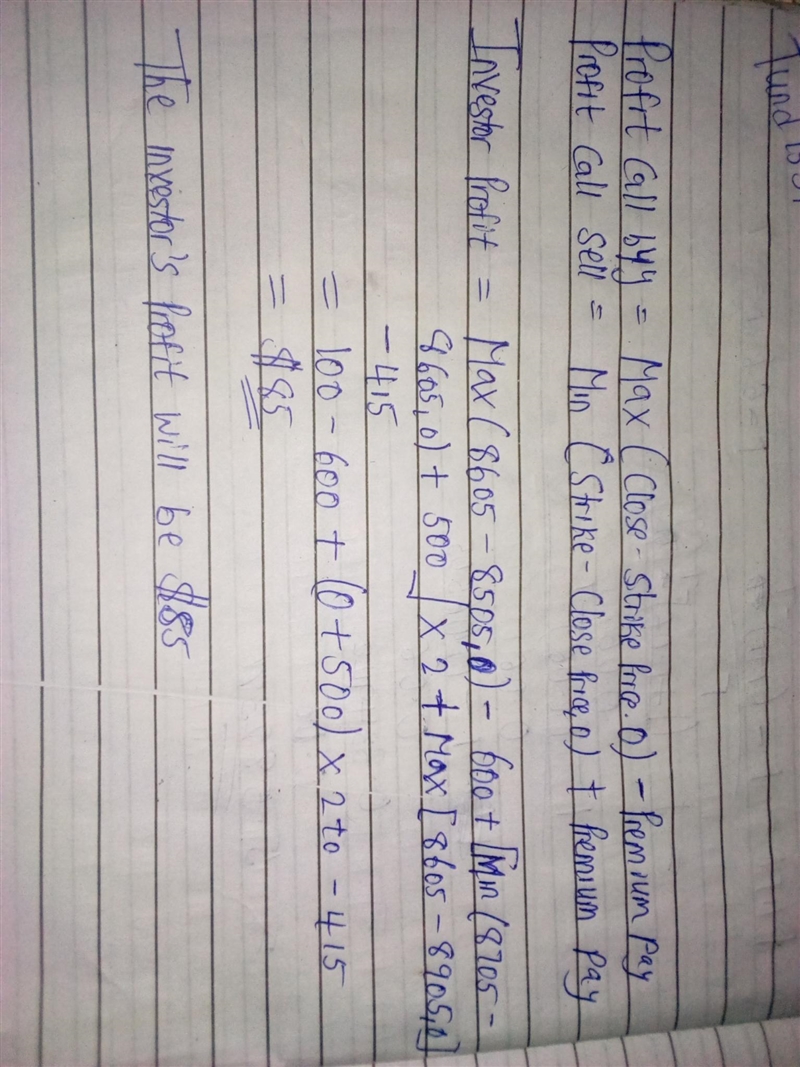 Fund is
Profit Call byy = Max (Close - Strike Price. 0) - Premium Pay
Profit Call Sell = Min (Strike - Close Price, 0) + Premium Pay
Investor Profit = Max (8605 - 8505, 0) - 600 + [Min (8705 -
8605, 0) + 500] x 2 + Max [8605 - 8905, 0]
- 415
= 100 - 600 + (0 + 500) x 2 + 0 - 415
= $85
The investor's Profit will be $85